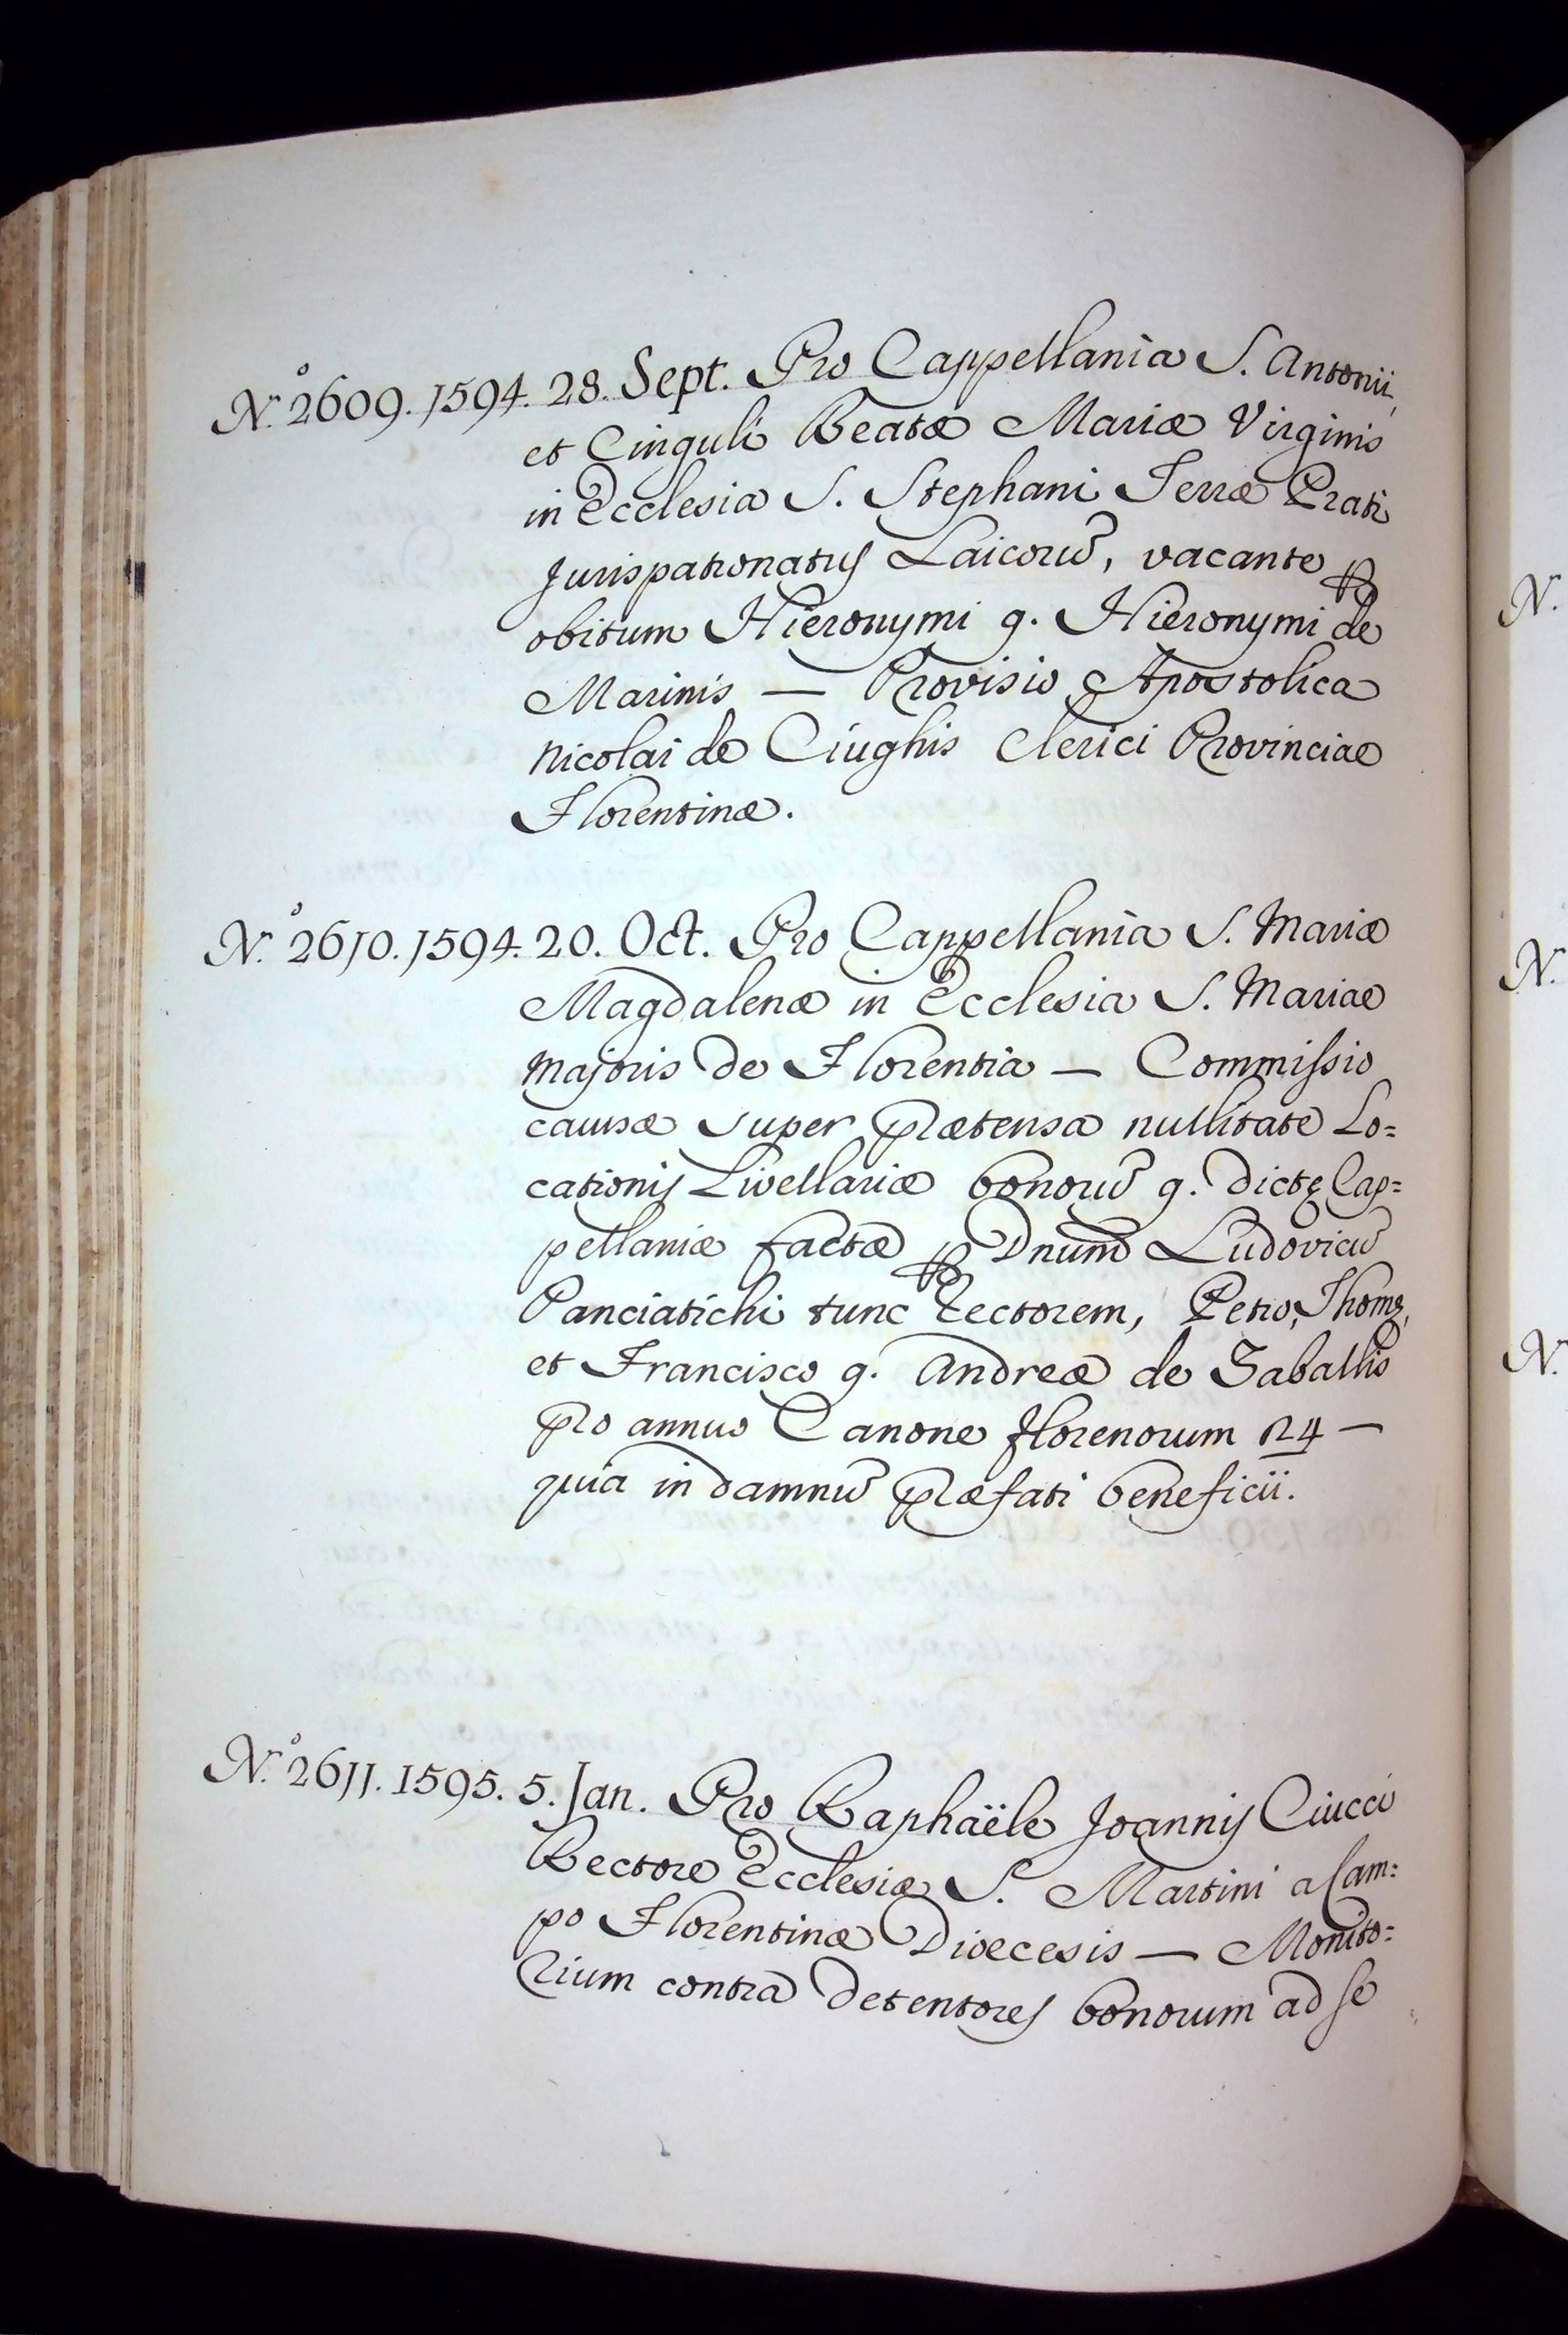 N.º 2609. 1594. 28. Sept. Pro Cappellania S. Antonii,
et Cinguli Beatæ Mariæ Virginis
in Ecclesia S. Stephani Terræ Prati
Jurispatronatus Laicorũ, vacante ꝑ
obitum Hieronymi q. Hieronymi de
Marinis — Provisio Apostolica
Nicolai de Ciughis Clerici Provinciae
Florentinæ.
N.º 2610. 1594. 20. Oct. Pro Cappellania S. Mariæ
Magdalenæ in Ecclesia S. Mariae
Majoris de Florentia — Commiſsio
causæ super prætensa nullitate Lo=
cationis Livellariæ bonorũ q. dictę Cap=
pellaniæ factæ ꝑ Dnum Ludovicũ
Panciatichi tunc Rectorem, Petro, Thomę,
et Francisco q. Andreæ de Saballis
pro annuo Canone florenorum 24 —
quia in damnũ præfati beneficii.
N.º 2611. 1595. 5. Jan. Pro Raphaële Joannis Ciucci
Rectore Ecclesiæ S. Martini a Cam=
po Florentinæ Dioecesis — Monito=
rium contra detentores bonorum ad se
N.
N.
N.